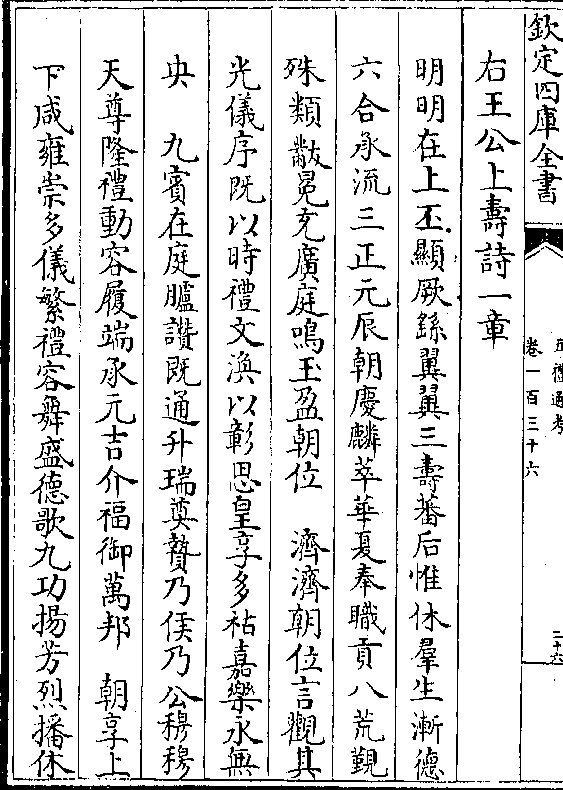 欽定四庫全書
五禮通考
卷一百三十六
二十六
右王公上壽詩一章
明明在上丕顯厥繇翼翼三壽蕃后惟休羣生漸德
六合承流三正元辰朝慶麟萃華夏奉職貢八荒覲
殊類黻冕充廣庭鳴玉盈朝位　濟濟朝位言觀其
光儀序既以時禮文渙以彰思皇享多祜嘉樂永無
央　九賓在庭臚讚既通升瑞奠贄乃侯乃公穆穆
天尊隆禮動容履端承元吉介福御萬邦　朝享上
下咸雍崇多儀繁禮容舞盛德歌九功揚芳烈播休